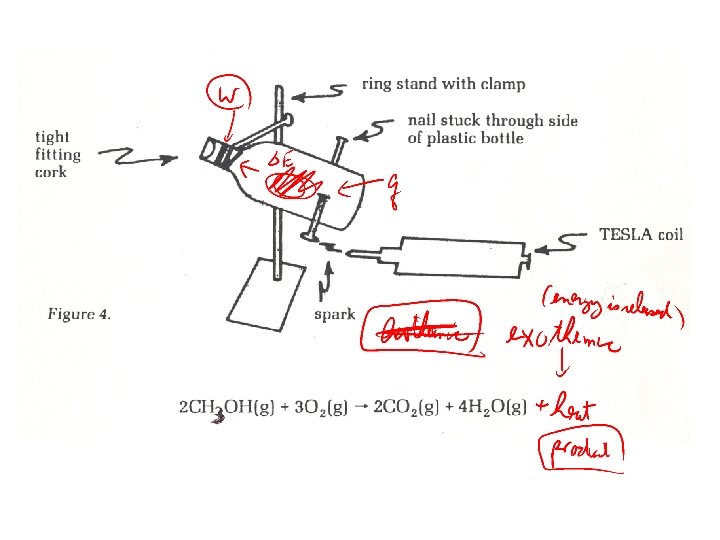 ring stand with clamp
W
nail stuck through side
of plastic bottle
tight
fitting
cork
ΔE
q
TESLA coil
Figure 4.
spark
(energy is released)
exothermic
2CH3OH(g) + 3O₂(g) → 2CO₂(g) + 4H₂O(g) + heat
product